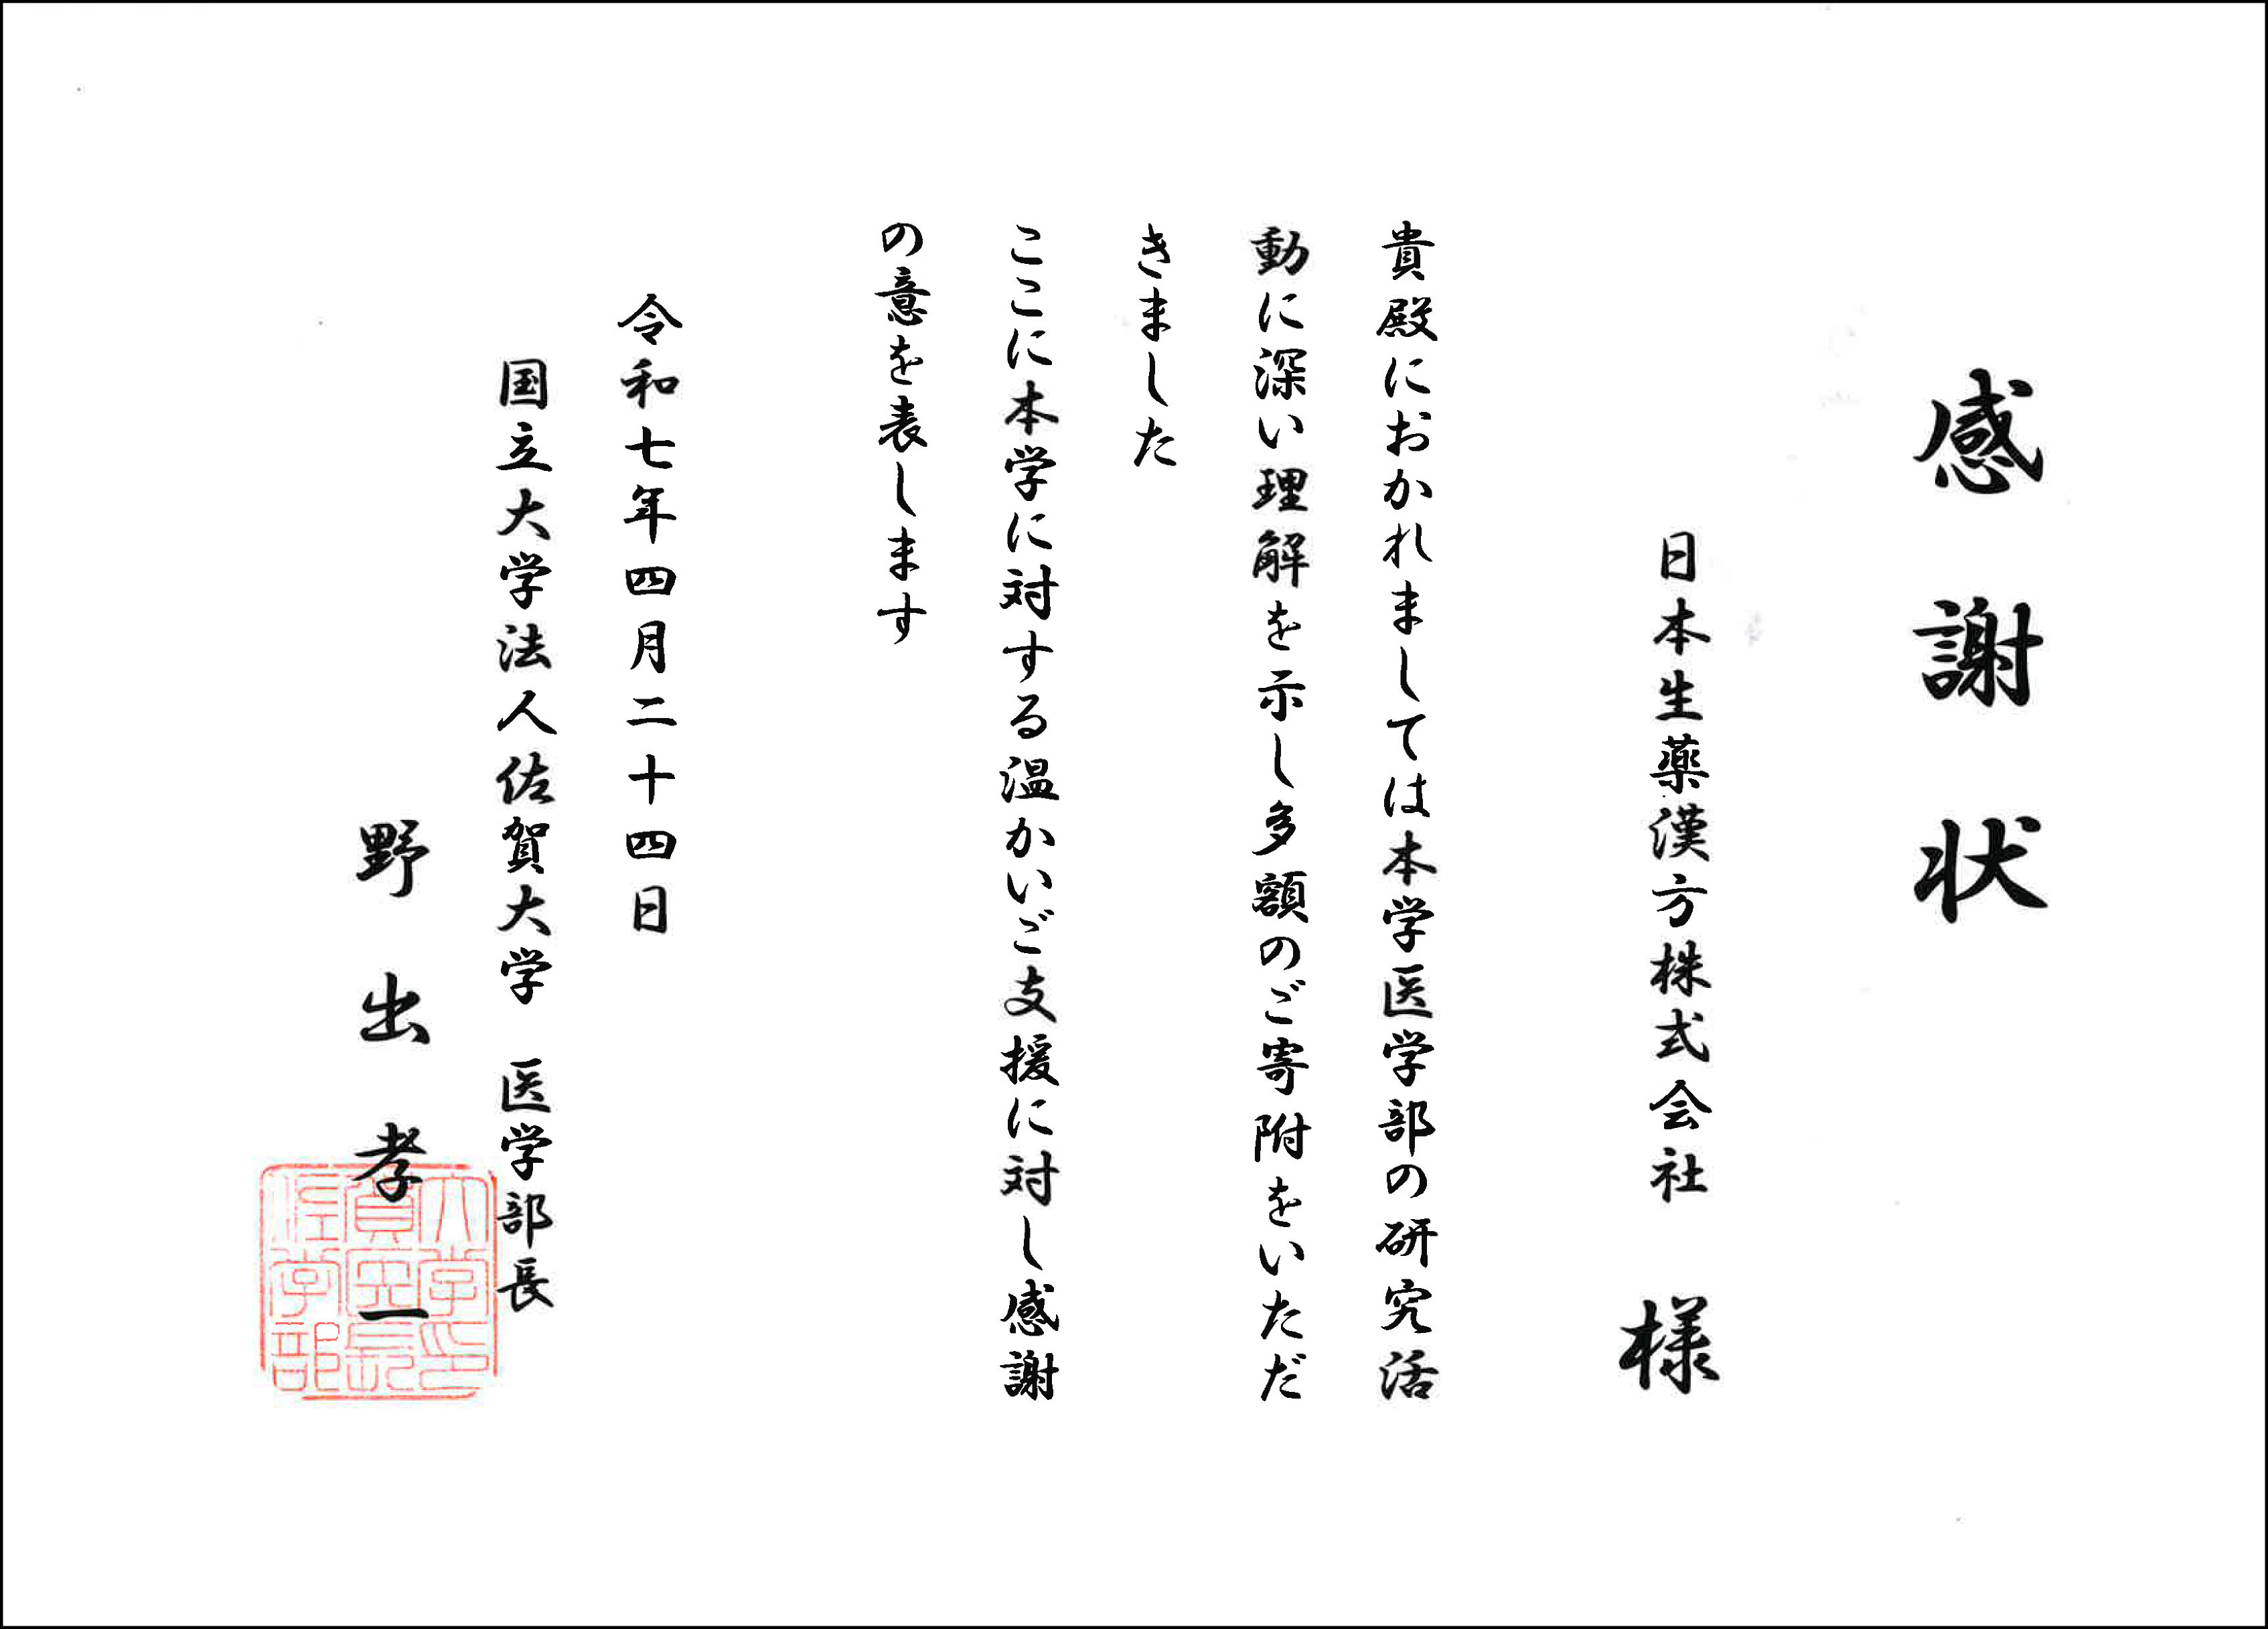 感謝状
日本生薬漢方株式会社 様
貴殿におかれましては本学医学部の研究活
動に深い理解を示し多額のご寄附をいただ
きました
ここに本学に対する温かいご支援に対し感謝
の意を表します
令和七年四月二十四日
国立大学法人佐賀大学 医学部長
野出孝一